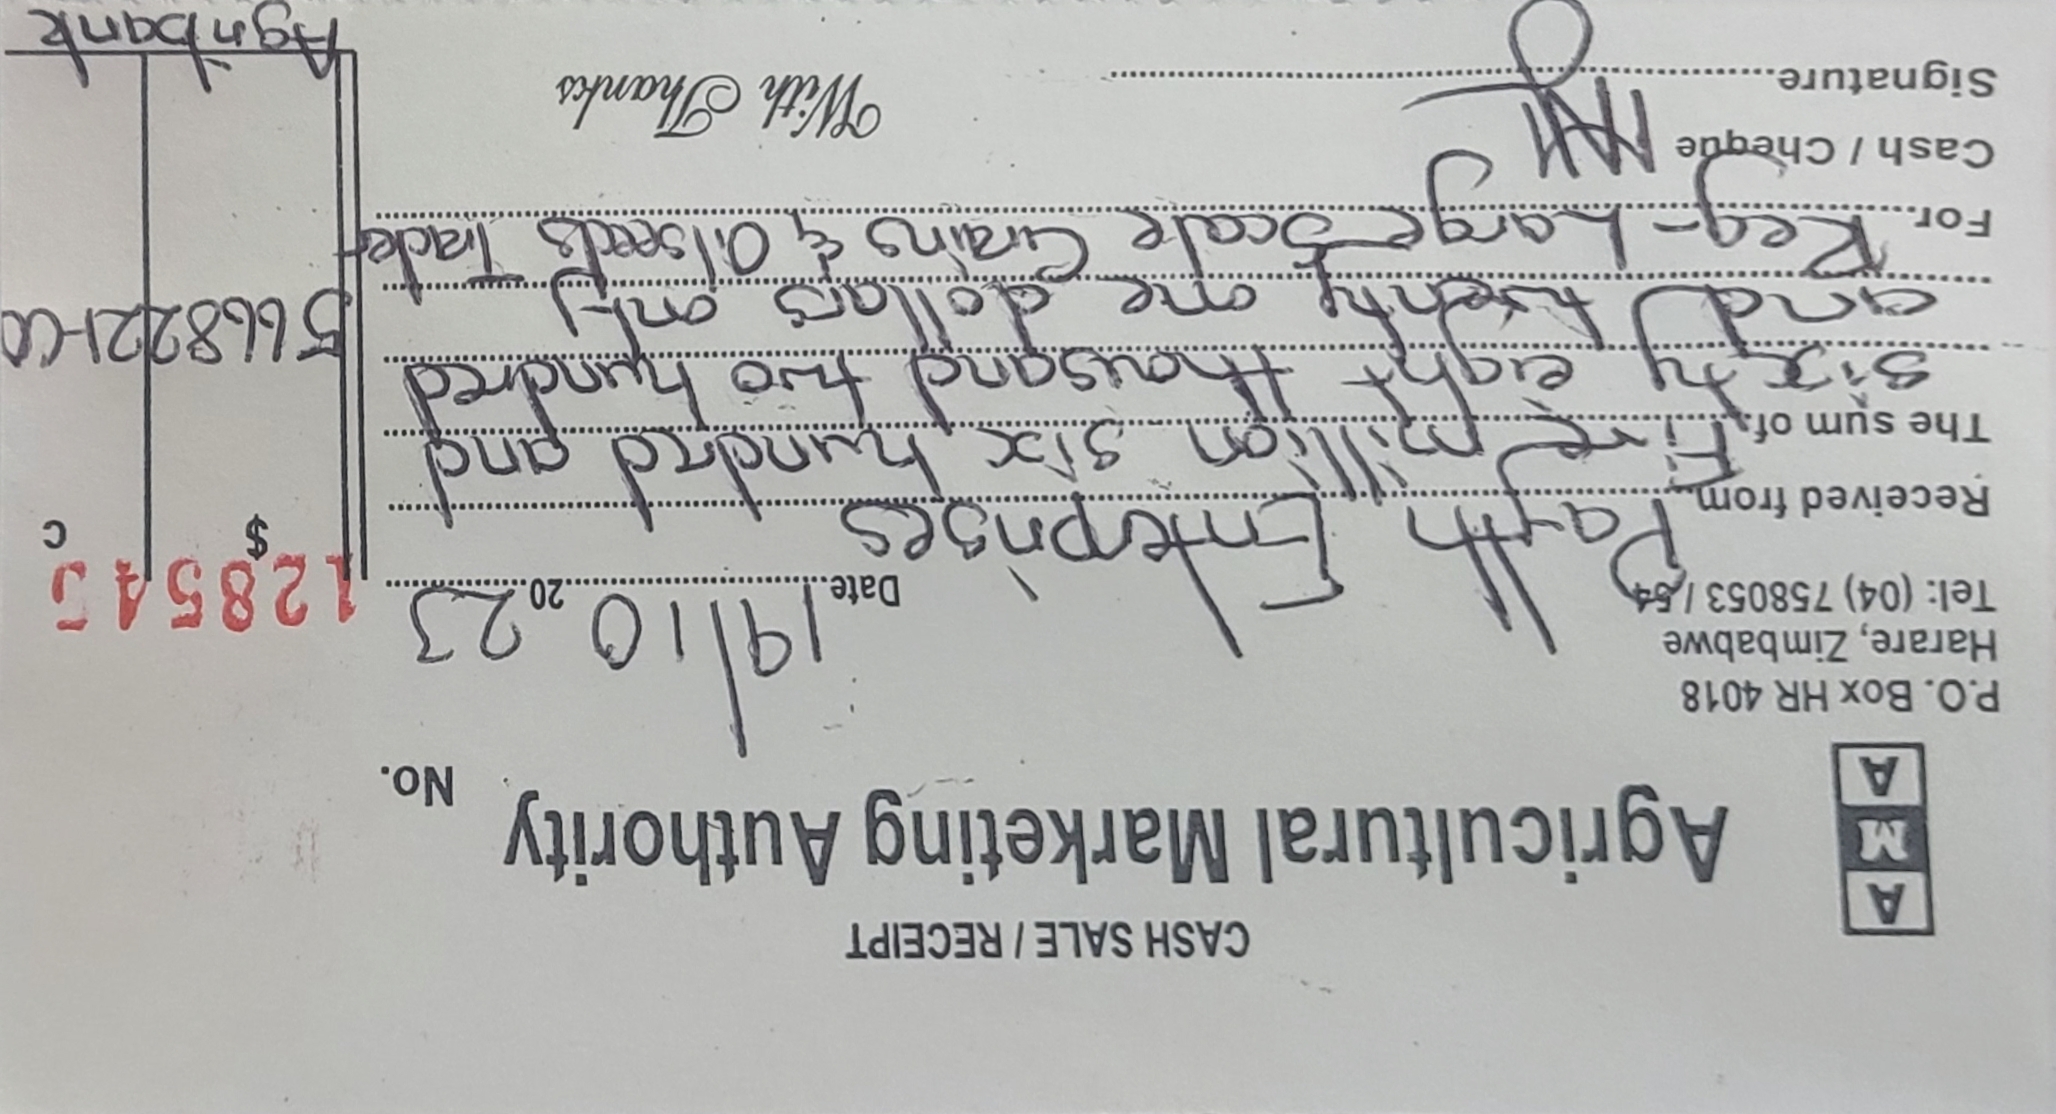 CASH SALE / RECEIPT
A
M
A
Agricultural Marketing Authority
No.
P.O. Box HR 4018
Harare, Zimbabwe
Tel: (04) 758053 / 54
128545
Date 19/10 20 23
$ c
Received from Payth Enterprises
The sum of Five million six hundred and
sixty eight thousand two hundred
and twenty one dollars only
5668221-00
For Reg - Large Scale Grains & Oilseeds Trader
Cash / Cheque
With Thanks
Signature
Agribank